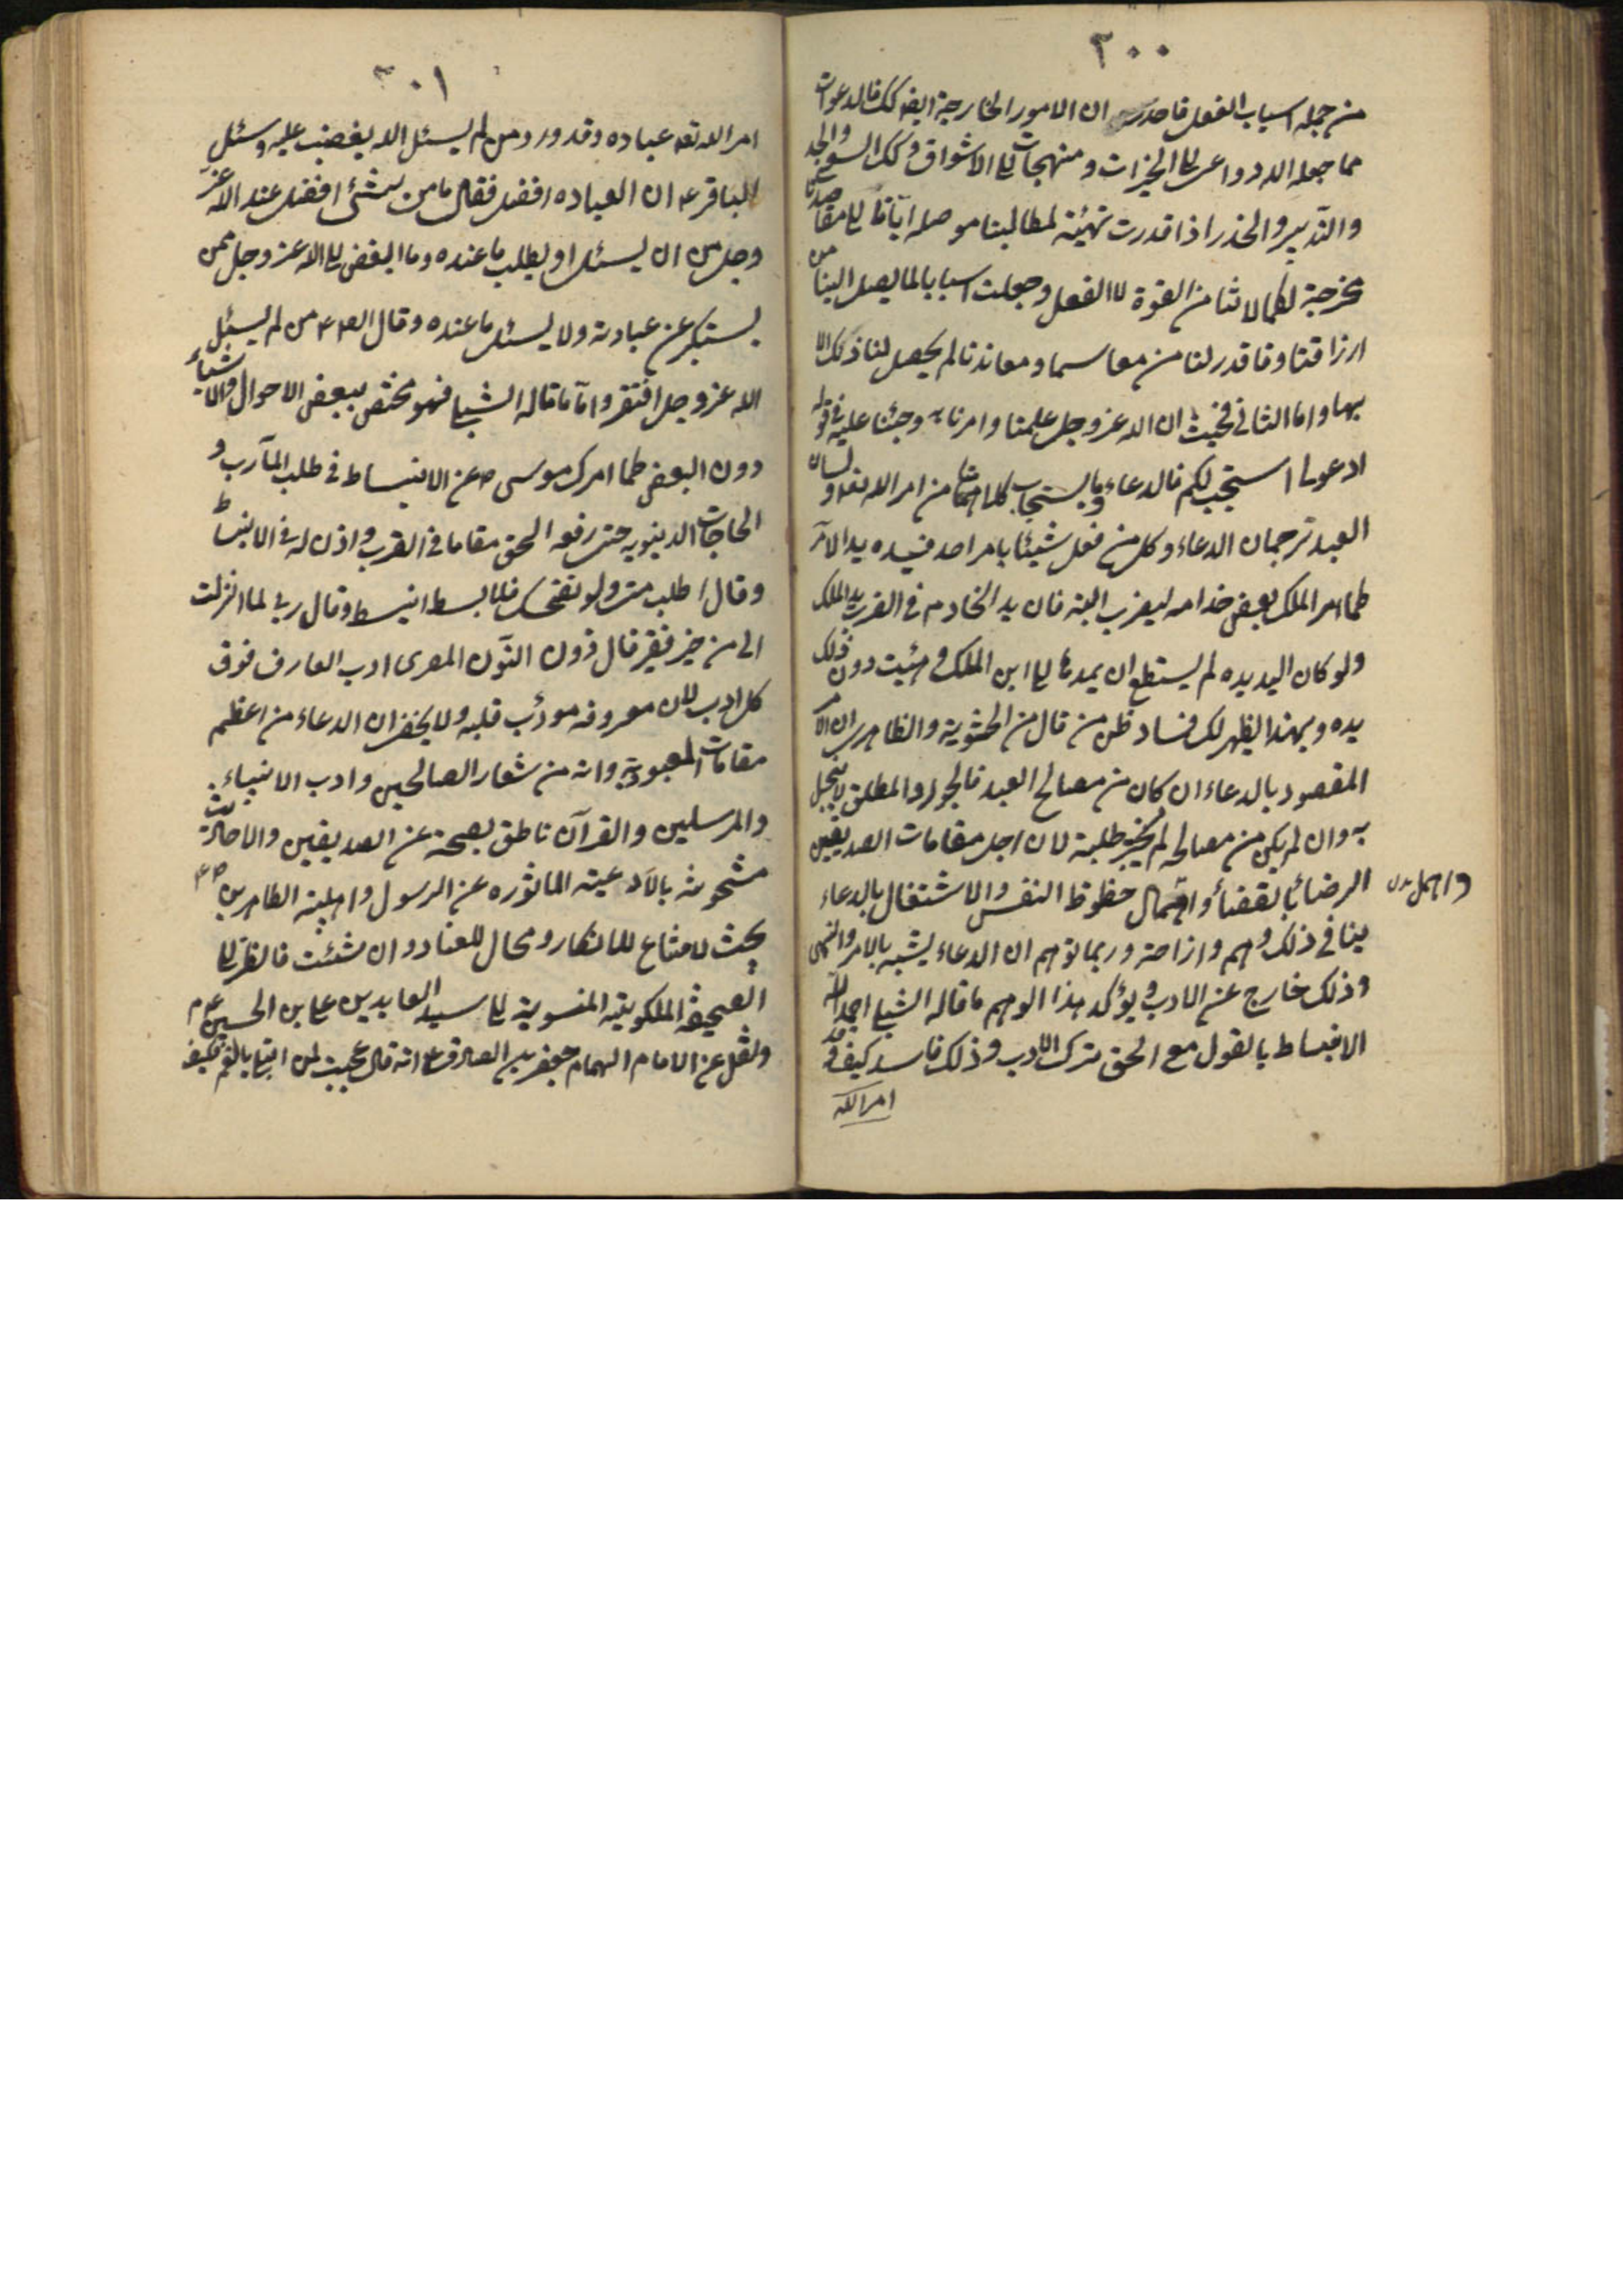 ٣٠٠
من جمله اسباب الفعل فاحدس ان الامور الخارجة ايضا كك فالدعوات
مما جعله الله دواعى الى الخيرات ومنهجات الى الاشواق وكك السعى والجد
والتدبير والحذر اذا قدرت تهيئة لمطالبنا موصله ايانا الى مقاصدنا
مخرجة لكمالاتنا من القوة الى الفعل وجعلت اسبابا لما يصل الينا من
ارزاقنا وما قدر لنا من لم يحصل لنا ذلك الا
بها واما الثانى فحيث ان الله عز وجل علمنا وامرنا به وحثنا عليه فى قوله
ادعونى استجب لكم فالدعاء وما يستجاب كلاهما من امر الله تعه ولسان
العبد ترجمان الدعاء وكل من فعل شيئا بامر احد فيده يد الآمر
كما امر الملك بعض خدامه ليضرب ابنه فان يد الخادم فى الضرب يد الملك
ولو كان اليد يده لم يستطع ان يمدها الى ابن الملك دون ذلك
يده وبهذا يظهر لك فساد ظن من قال من الحشوية والظاهريين ان الامر
المقصود بالدعاء ان كان من مصالح العبد فالجواد المطلق لا يبخل
به وان لم يكن من مصالحه لم يجز طلبه لان اجل مقامات الصديقين
الرضا بالقضاء واهمال حظوظ النفس والاشتغال بالدعاء
واهمال بدل
ينافى ذلك وهم وازاحة وربما توهم ان الدعاء يشبه بالامر والنهى
وذلك خارج عن الادب ويؤكد هذا الوهم ما قاله الشبلى
الانبساط بالقول مع الحق ترك الادب وذلك فاسد كيف وقد
امر الله
٣٠١
امر الله تعه عباده وقد ورد من لم يسئل الله يغضب عليه وسئل
الباقر ع ان العباده افضل فقال ما من شئ افضل عند الله عز
وجل من ان يسئل او يطلب ما عنده وما ابغض الى الله عز وجل ممن
يستكبر عن عبادته ولا يسئل ما عنده وقال الص ع من لم يسئل
الله عز وجل افتقر واما ما قاله الشبلى فهو مختص ببعض الاحوال والاشياء
دون البعض كما امرك موسى ص عن الانبساط فى طلب المآرب و
الحاجات الدينويه حتى رفعه الحق مقاما فى القرب واذن له فى الانبساط
وقال اطلب منى ولو فلما بسط انبسط وقال رب انى لما انزلت
الى من خير فقير قال ذون النون المصرى ادب العارف فوق
كل ادب لان معروفه مودب قلبه ولا يخفى ان الدعاء من اعظم
مقامات العبودية وانه من شعار الصالحين وادب الانبياء
والمرسلين والقرآن ناطق بصحته عن الصديقين والاحاديث
مشحونة بالادعية الماثوره عن الرسول واهلبيته الطاهرين ص ع
بحيث لا متاع للانكار ومحال للعناد وان شئت فانظر الى
الصحيفة الملكوتية المنسوبة الى سيد العابدين على بن الحسين ع م
ونقل عن الامام الهمام جعفر بن الصادق ع انه قال عجبت لمن ابتلى بالغم كيف